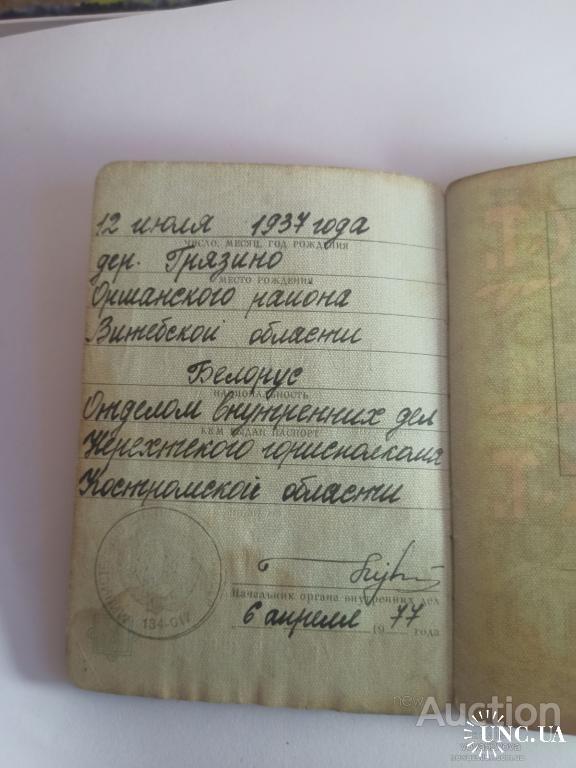 12 июля 1937 года
ЧИСЛО, МЕСЯЦ, ГОД РОЖДЕНИЯ
дер. Грязино
МЕСТО РОЖДЕНИЯ
Оршанского района
Витебской области
Белорус
НАЦИОНАЛЬНОСТЬ
Отделом внутренних дел
КЕМ ВЫДАН ПАСПОРТ
Нерехтского горисполкома
Костромской области
Начальник органа внутренних дел
6 апреля 1977 года
Auction
UNC.UA